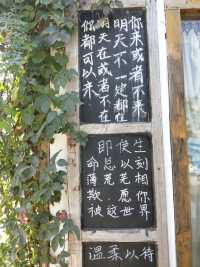 你来或者不来
明天不一定都在
明天在或者不在
你都可以来
即使生
命总以刻
薄荒芜相
欺.愿你
被这世界
温柔以待